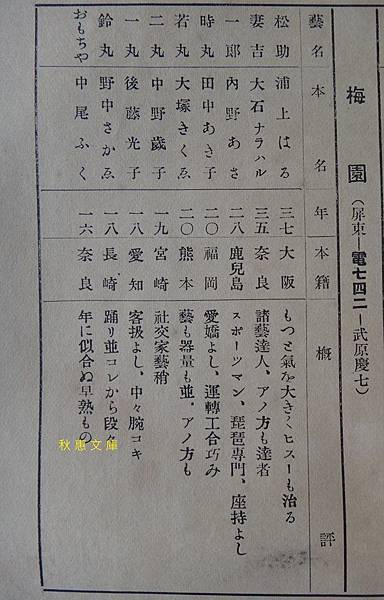 梅園（屏東—電七四二—武原慶七）
藝名 本名 年 本籍 概評
松助 浦上はる 三七 大阪 もつと氣を大きくヒスーも治る
妻吉 大石ナラハル 三五 奈良 諸藝達人、アノ方も達者
一郎 內野あさ 二八 鹿兒島 スポーツマン、琵琶專門、座持よし
時丸 田中あき子 二〇 福岡 愛嬌よし、運轉工合巧み
若丸 大塚きくゑ 二〇 熊本 藝も器量も並。アノ方も
二丸 中野歲子 一九 宮崎 社交家藝稍
一丸 後藤光子 一八 愛知 客扱よし、中々腕コキ
鈴丸 野中さかゑ 一八 長崎 踊り並コレから段々
おもちや 中尾ふく 一六 奈良 年に似合ぬ早熟もの
秋惠文庫